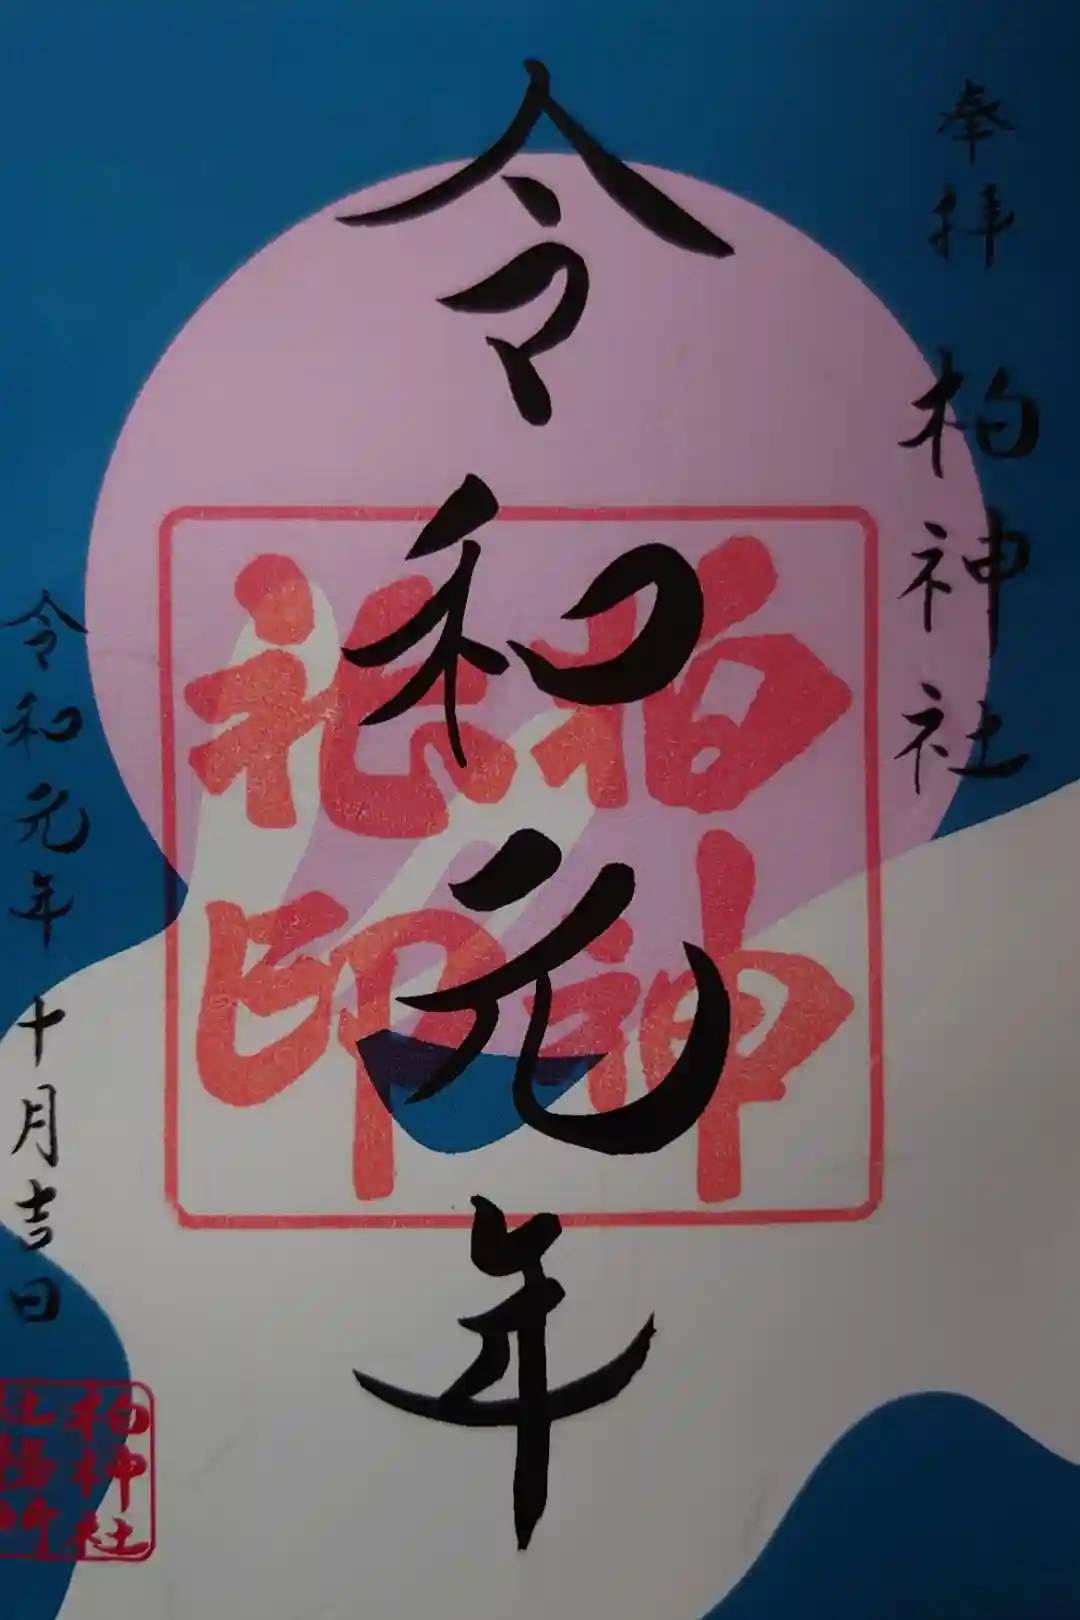 奉拝 柏神社
令和元年
柏神
社印
令和元年 十月吉日
柏神社
社務所